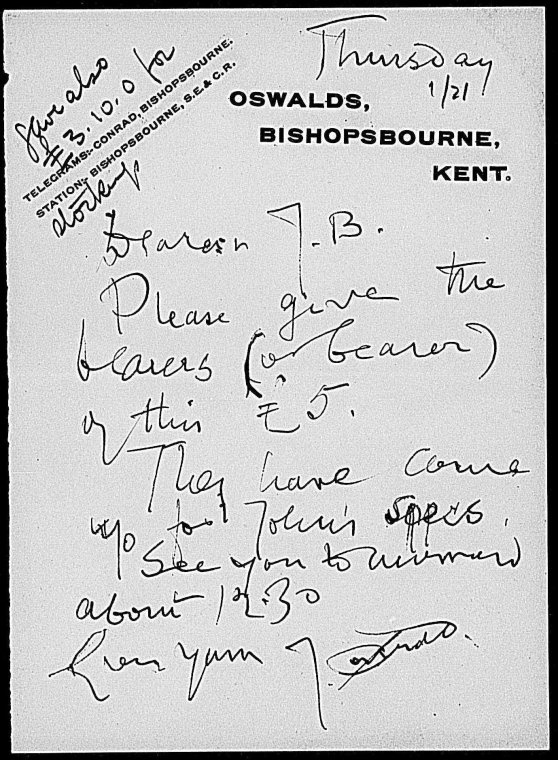 Thursday
1/21
Gave also
£3.10.0 for
stockings
TELEGRAMS:-CONRAD, BISHOPSBOURNE.
STATION:- BISHOPSBOURNE, S.E. & C.R.
OSWALDS,
BISHOPSBOURNE,
KENT.
Dearest J.B.
Please give the
bearers (or bearer)
of this £5.
They have come
up for John's specs.
See you tomorrow
about 12.30
Ever yours J. Conrad.